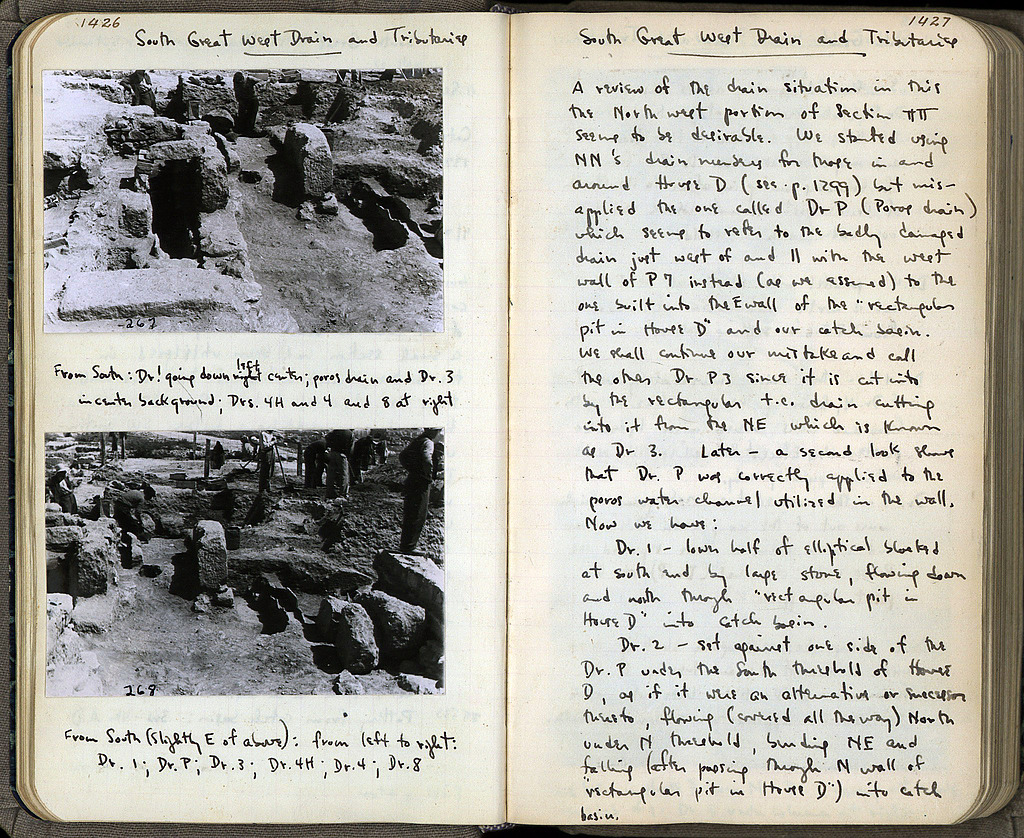 1426
South Great West Drain and Tributaries
267
left
From South: Dr. 1 going down right center; poros drain and Dr. 3
in center background; Drs. 4H and 4 and 8 at right
268
From South (slightly E of above): from left to right:
Dr. 1; Dr. P; Dr. 3; Dr. 4H; Dr. 4; Dr. 8
1427
South Great West Drain and Tributaries
A review of the drain situation in this
the Northwest portion of Section ΠΠ
seems to be desirable. We started using
NN's drain numbers for those in and
around House D (see p. 1299) but mis-
applied the one called Dr P (Poros drain)
which seems to refer to the badly damaged
drain just west of and || with the west
wall of P 7 instead (as we assumed) to the
one built into the E wall of the "rectangular
pit in House D" and our catch basin.
We shall continue our mistake and call
the other Dr P 3 since it is cut into
by the rectangular t.c. drain cutting
into it from the NE which is known
as Dr 3. Later - a second look shows
that Dr. P was correctly applied to the
poros water channel utilized in the wall.
Now we have:
Dr. 1 - lower half of elliptical blocked
at south end by large stone, flowing down
and north through "rectangular pit in
House D" into catch basin.
Dr. 2 - set against one side of the
Dr. P under the South threshold of House
D, as if it were an alternative or successor
thereto, flowing (covered all the way) North
under N threshold, bending NE and
falling (after passing through N wall of
"rectangular pit in House D") into catch
basin.